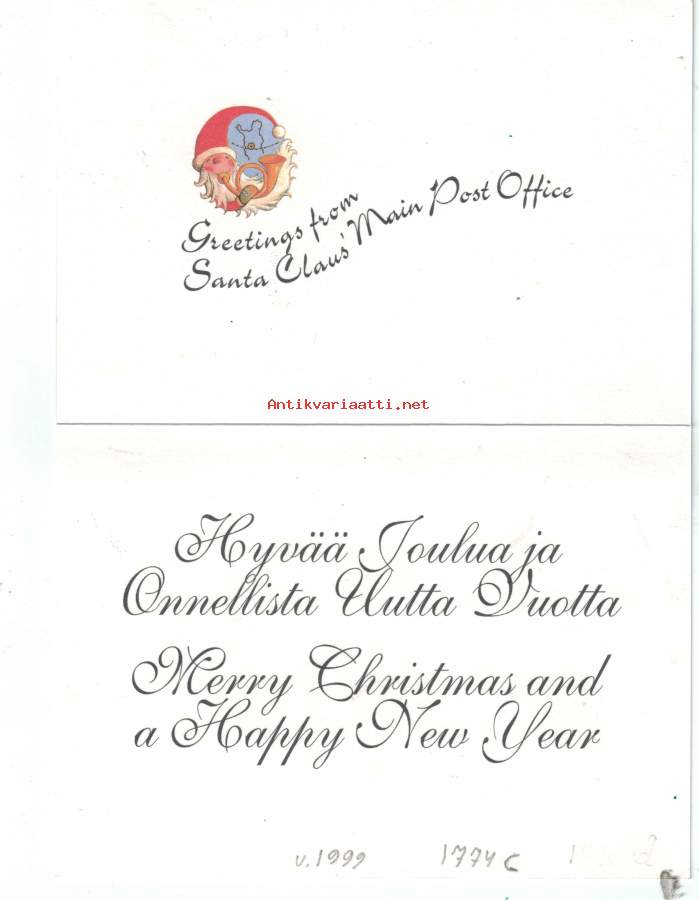 Greetings from
Santa Claus' Main Post Office
Antikvariaatti.net
Hyvää Joulua ja
Onnellista Uutta Vuotta
Merry Christmas and
a Happy New Year
v.1999 1774 C